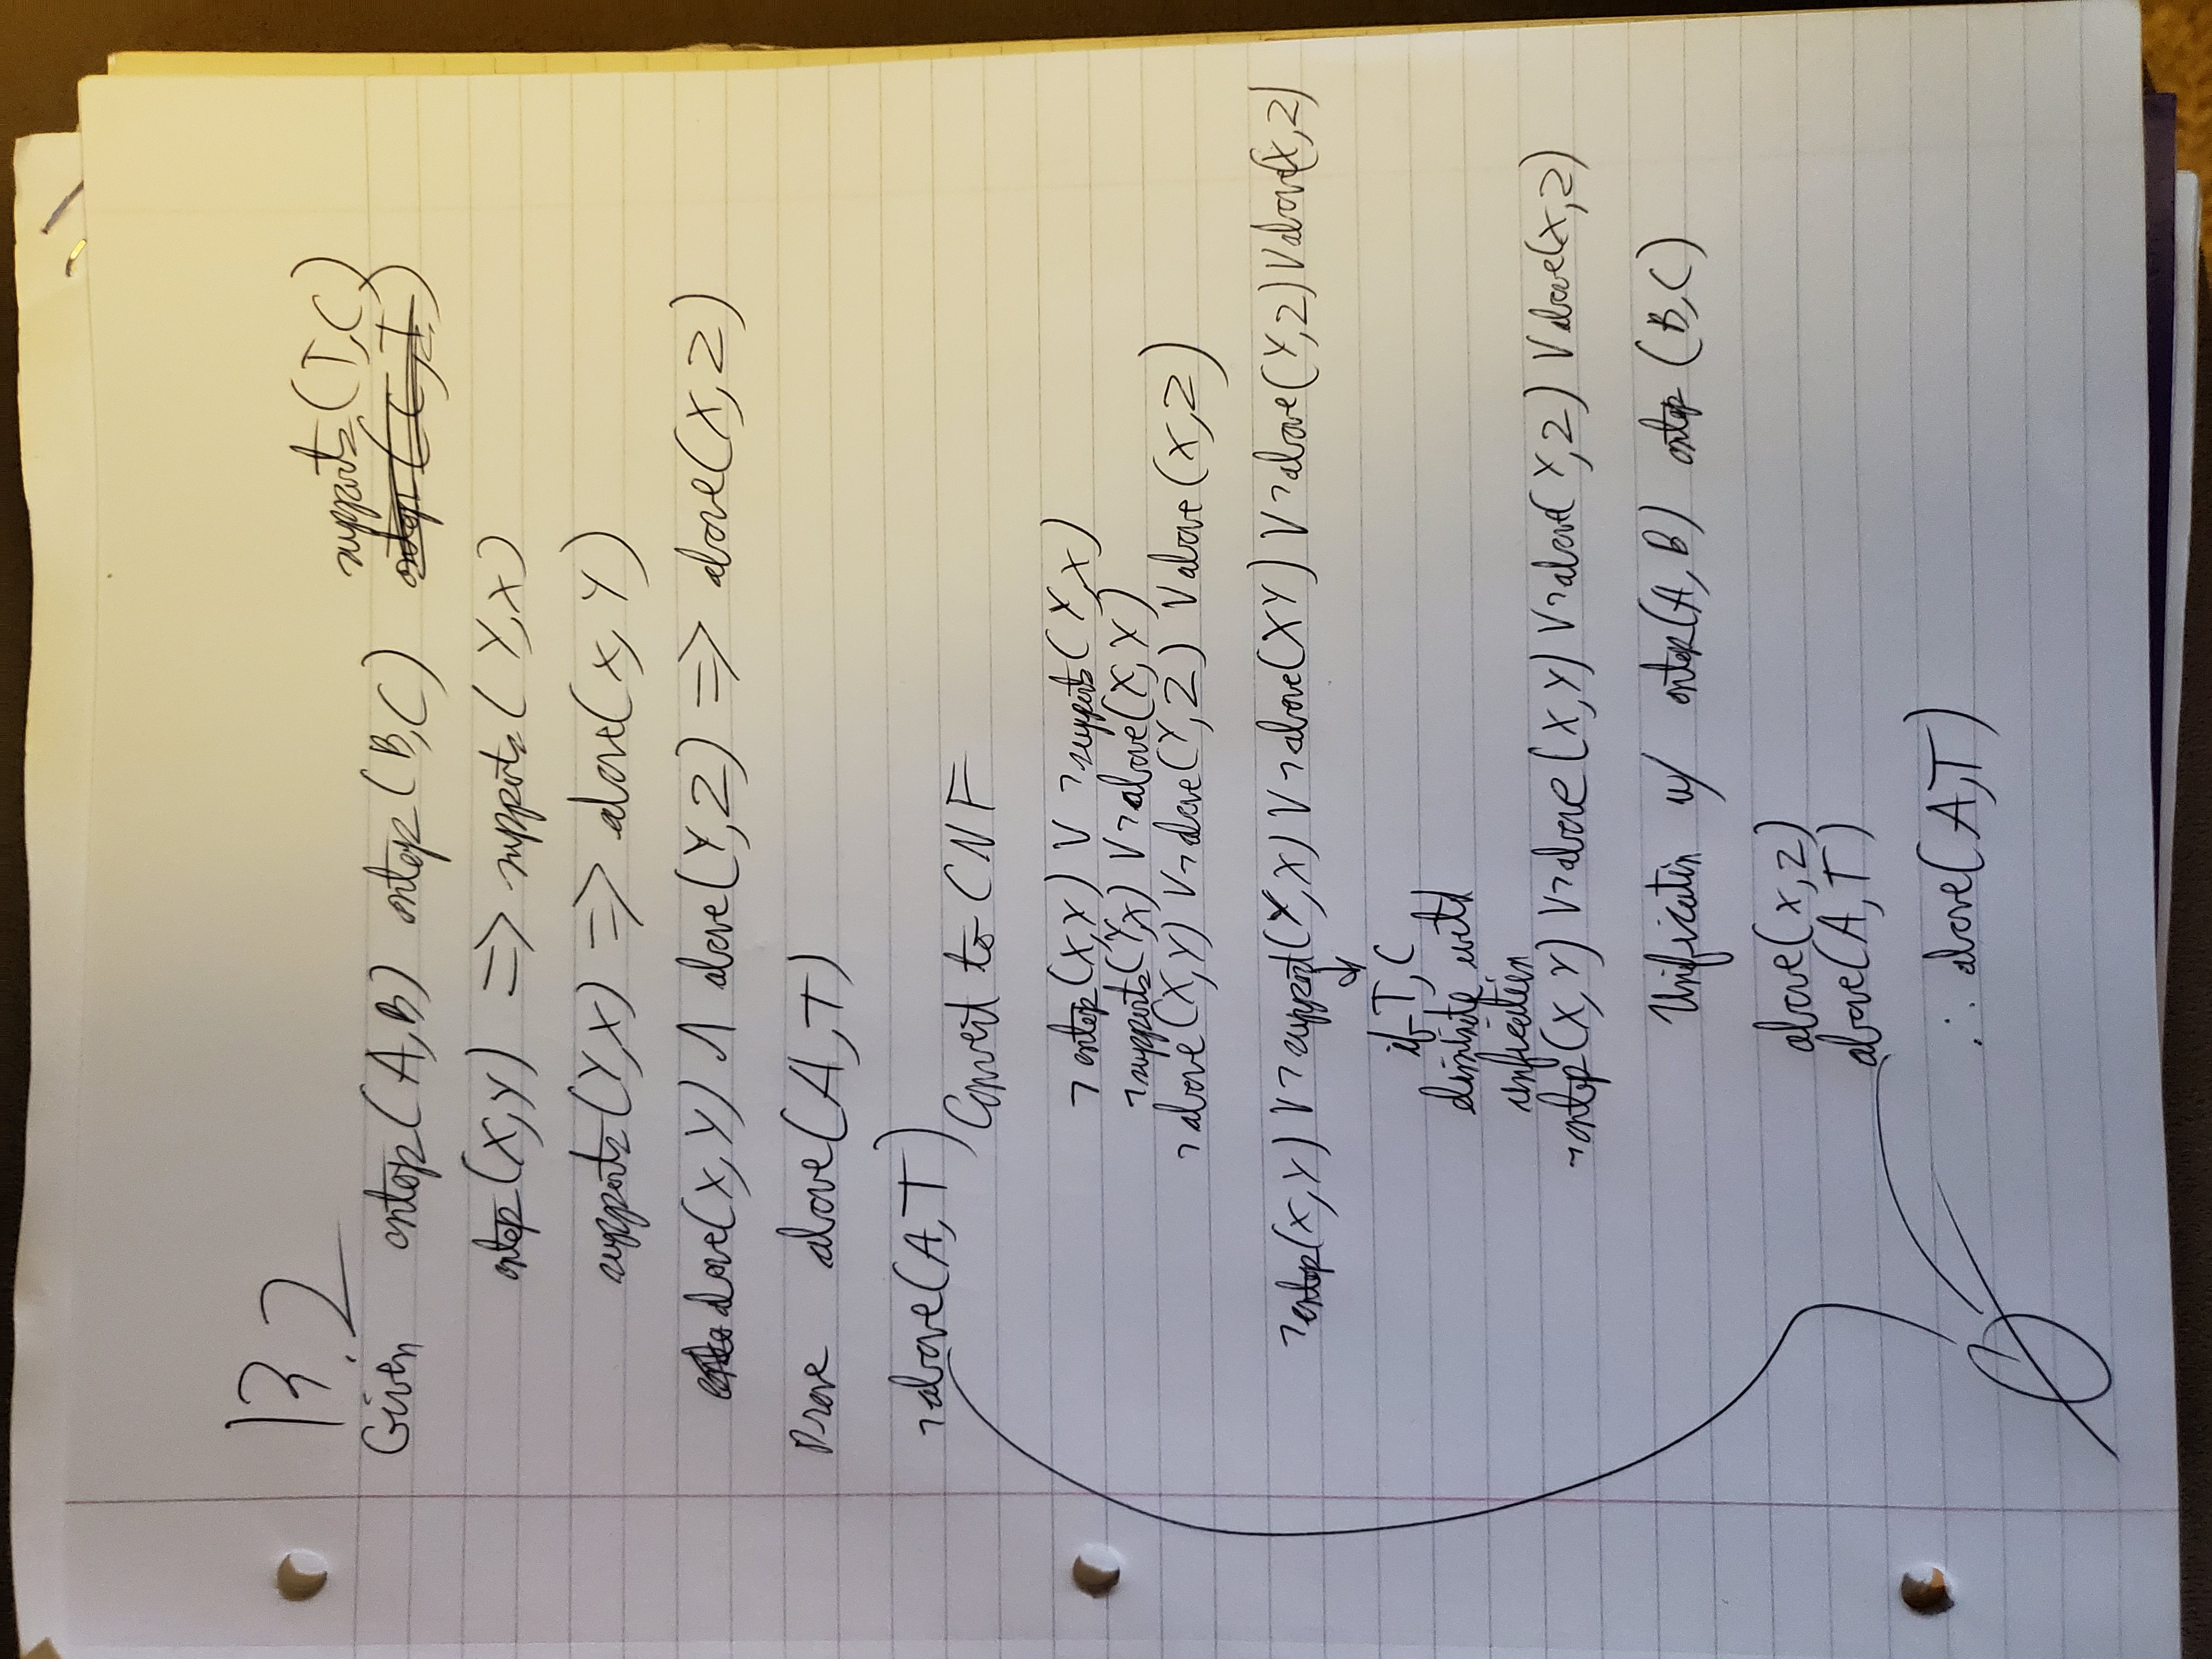 13.2
supports(T,C)
Given ontop(A,B) ontop(B,C) ontop(C,T)
ontop(X,Y) => supports(Y,X)
supports(Y,X) => above(X,Y)
above(X,Y) ∧ above(Y,Z) => above(X,Z)
Prove above(A,T)
¬above(A,T)
Convert to CNF
¬ontop(X,Y) V ¬supports(Y,X)
¬supports(Y,X) V ¬above(X,Y)
¬above(X,Y) V ¬above(Y,Z) V above(X,Z)
¬ontop(X,Y) V ¬support(Y,X) V ¬above(XY) V ¬above(Y,Z) V above(X,Z)
↓
if T,C
eliminate with
unfication
¬ontop(X,Y) V ¬above(X,Y) V ¬above(Y,Z) V above(X,Z)
Unificatin w/ ontop(A,B) ontop(B,C)
above(X,Z)
above(A,T)
∴ above(A,T)